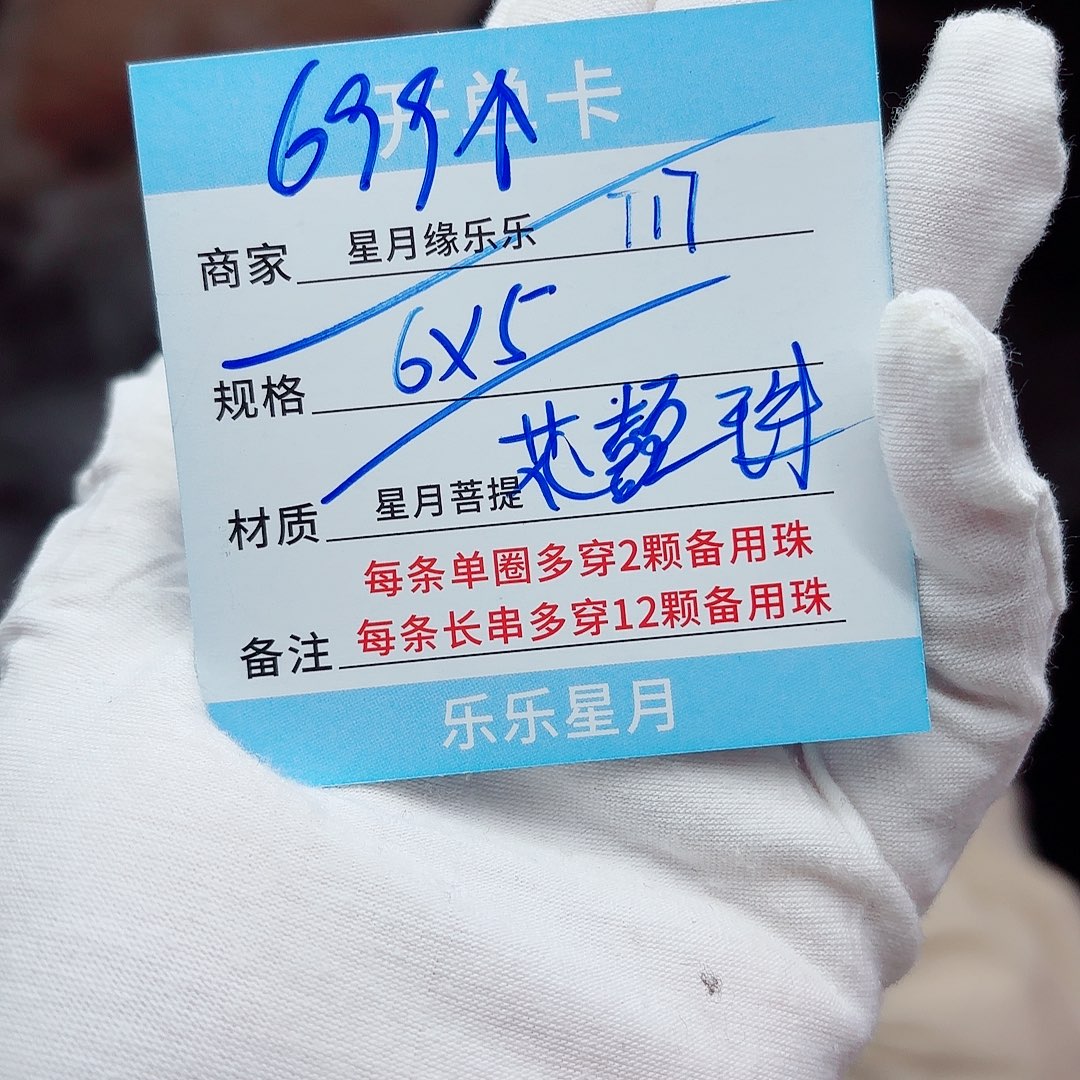 开单卡
699个
商家 星月缘乐乐 717
规格 6X5
材质 星月菩提 珠
每条单圈多穿2颗备用珠
备注 每条长串多穿12颗备用珠
乐乐星月